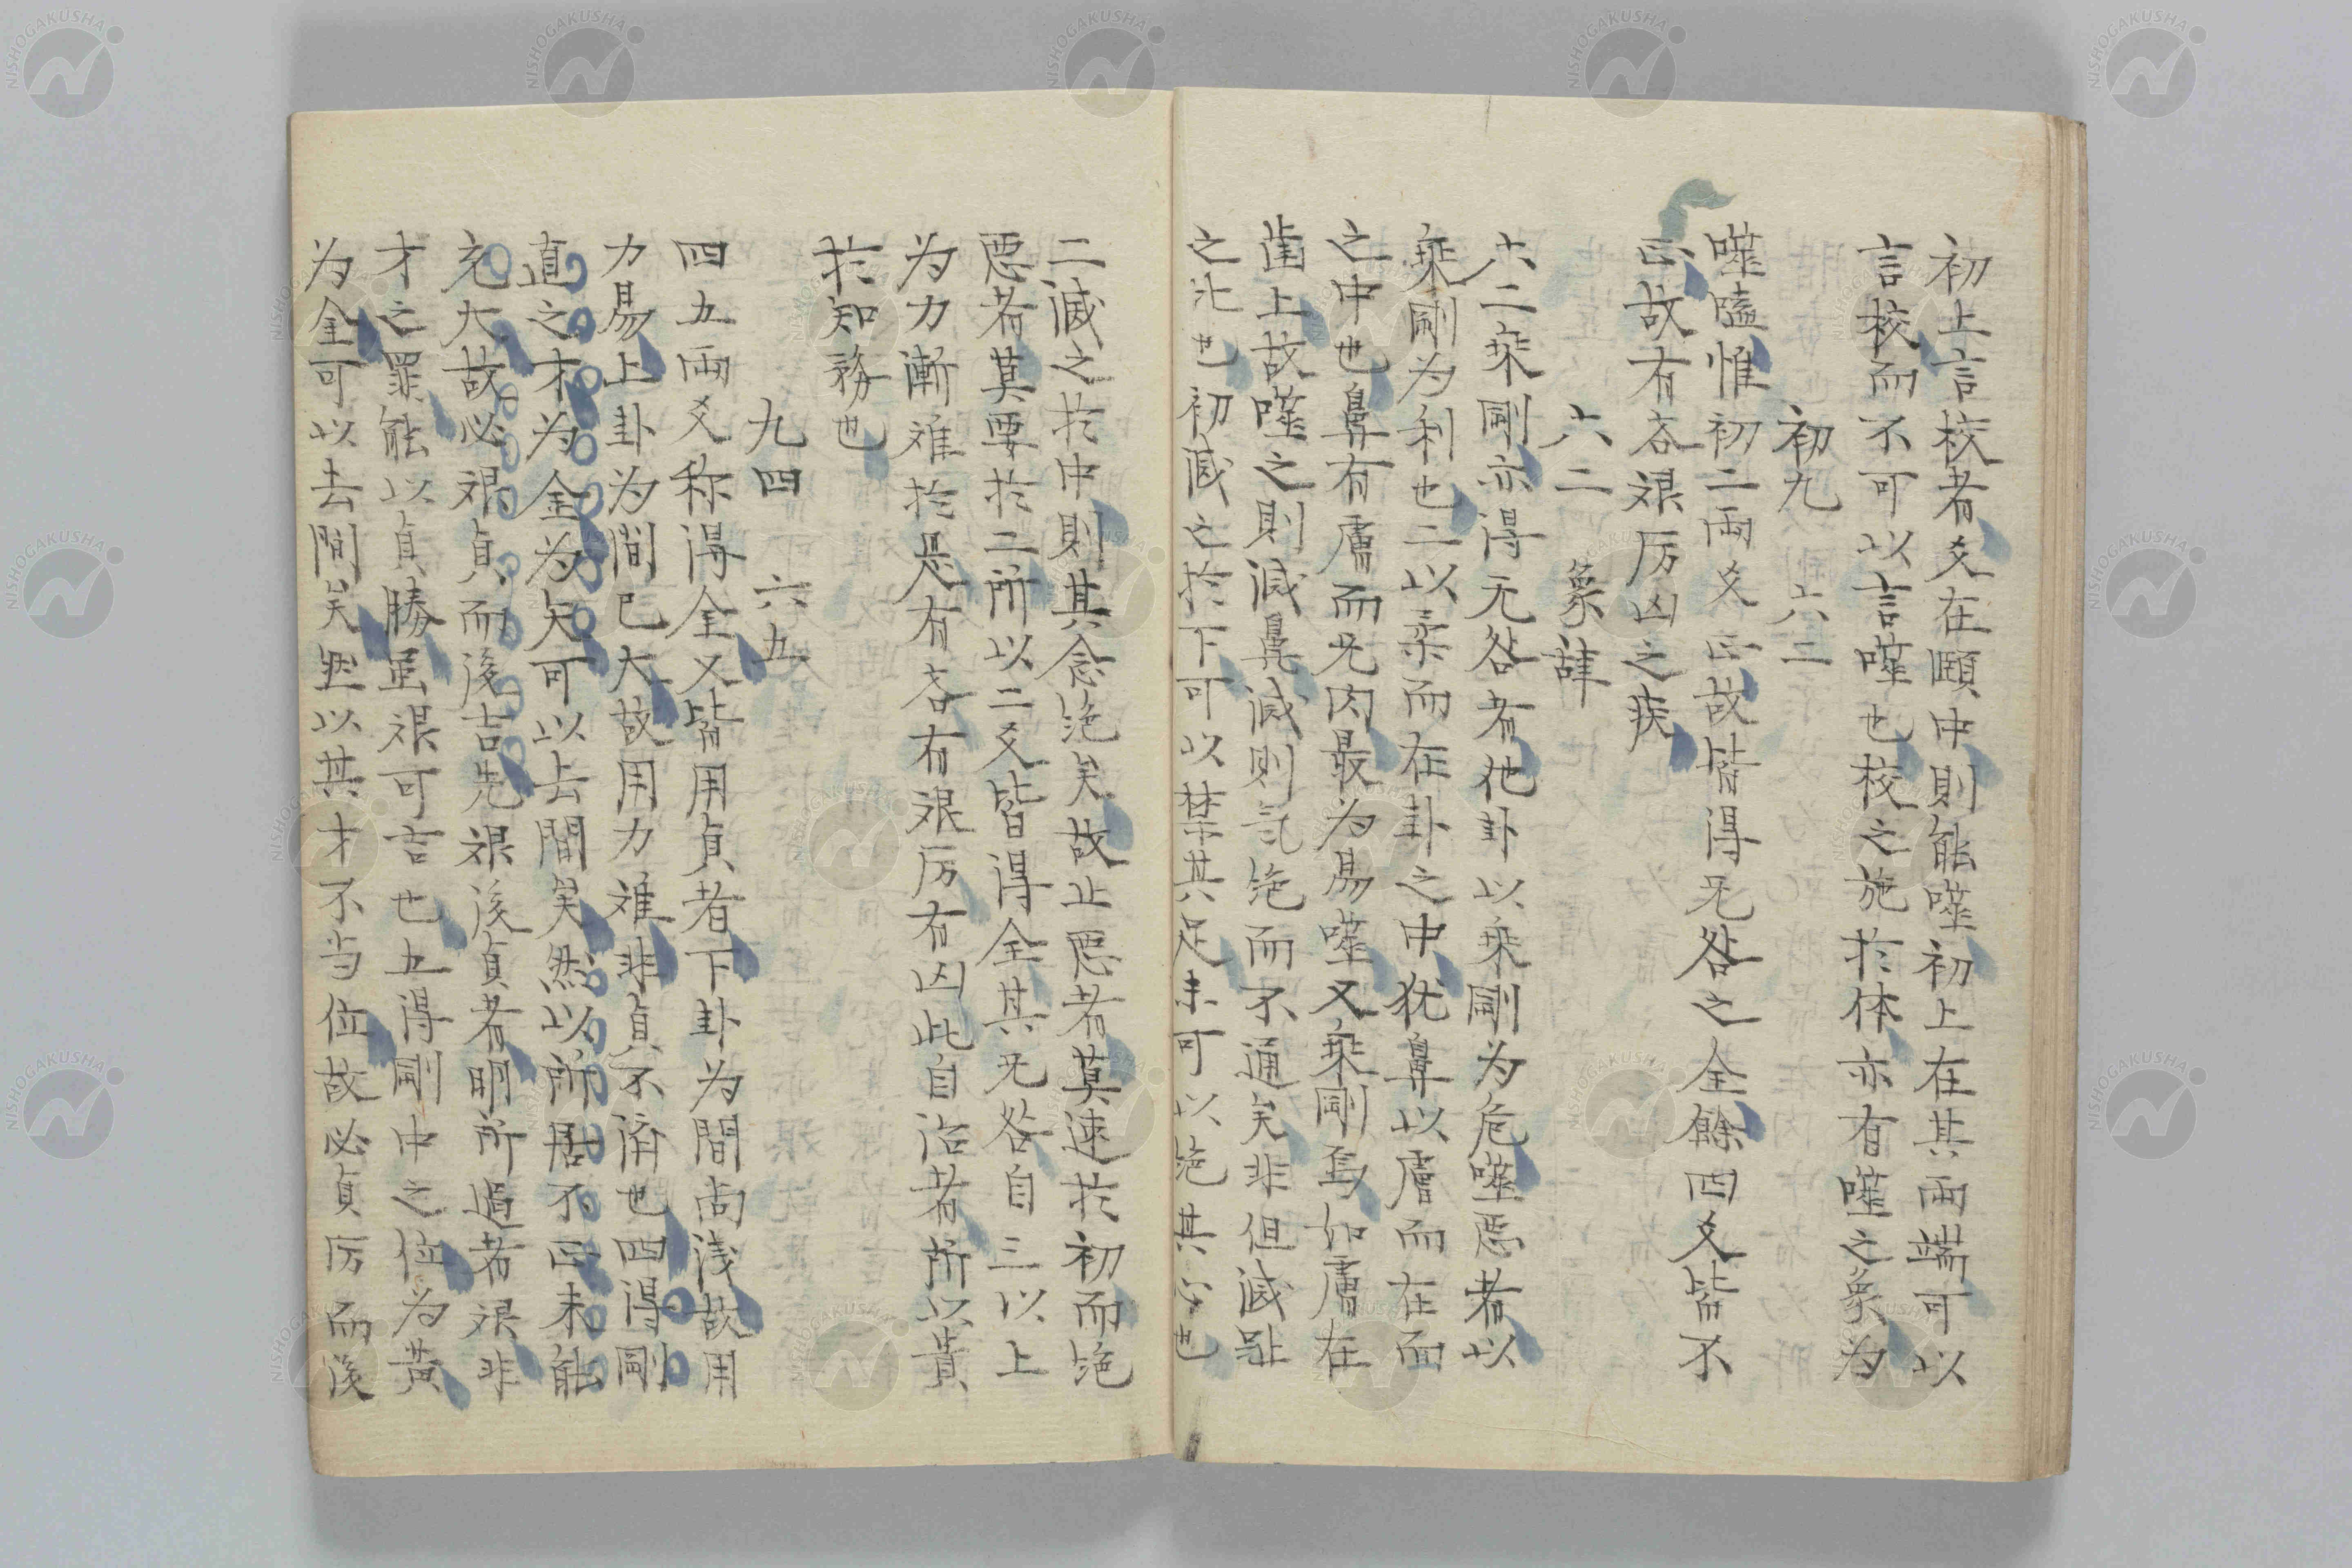 初上言校者爻在頤中則能噬初上在其兩端可以
言校而不可以言噬也校之施於体亦有噬之象為
初九　六二
噬嗑惟初二兩爻正故皆得无咎之全餘四爻皆不
正故有吝艱厉凶之疾
六二　象辞
六二乘剛亦得无咎者他卦以乘剛為危噬恶者以
乘剛为利也二以柔而在卦之中犹鼻以膚而在面
之中也鼻有膚而无肉最为易噬又乘剛焉如膚在
齿上故噬之則滅鼻滅则气绝而不通矣非但滅趾
之比也初滅之於下可以禁其足未可以绝其心也
二滅之於中則其念绝矣故止恶者莫速於初而绝
恶者莫要於二所以二爻皆得全其无咎自三以上
为力漸难於是有吝有艰厉有凶此自治者所以貴
於知務也
九四　六五
四五兩爻称得金又皆用貞者下卦为間尚浅故用
力易上卦为間已大故用力难非貞不済也四得剛
直之才为金为矢可以去間矣然以所居不正未能
充大故必艰貞而後吉先艰後貞者明所遇者艰非
才之罪能以貞勝虽艰可吉也五得剛中之位为黄
为金可以去間矣然以其才不当位故必貞厉而後